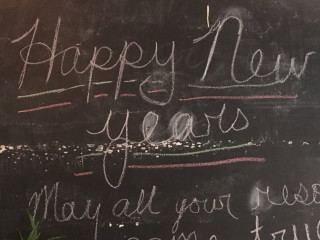 Happy New
years
May all your reso
come true